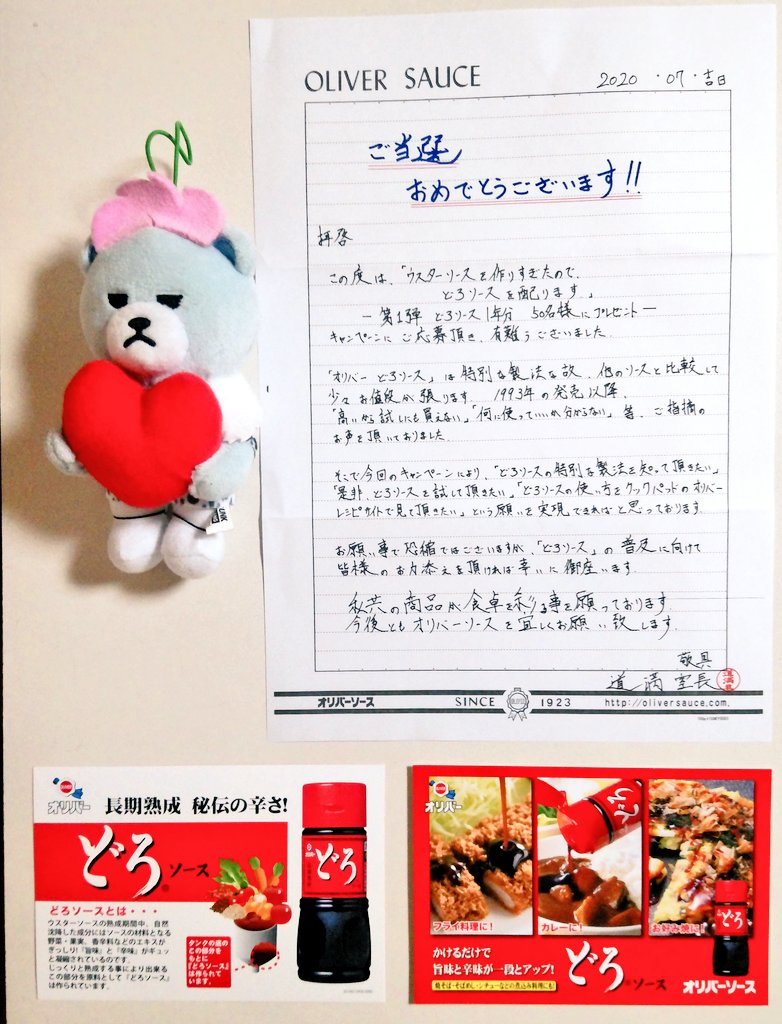 OLIVER SAUCE
2020・07・吉日
ご当選
おめでとうございます!!
拝啓
この度は、「ウスターソースを作りすぎたので、
どろソースを配ります。」
ー第1弾 どろソース1年分 50名様にプレゼントー
キャンペーンにご応募頂き、有難うございました。
「オリバーどろソース」は特別な製法な故、他のソースと比較して
少々お値段が張ります。1993年の発売以降、
「高いから試しにも買えない」「何に使っていいか分からない」等、ご指摘の
お声を頂いておりました。
そこで今回のキャンペーンにより、「どろソースの特別な製法を知って頂きたい」
「是非、どろソースを試して頂きたい」「どろソースの使い方をクックパッドのオリバー
レシピサイトで見て頂きたい」という願いを実現できればと思っております。
お願い事で恐縮ではございますが、「どろソース」の普及に向けて
皆様のお力添えを頂ければ幸いに御座います。
私共の商品が食卓を彩る事を願っております。
今後ともオリバーソースを宜しくお願い致します。
敬具
道満 室長
オリバーソース
SINCE 1923
http://oliversauce.com
オリバー
長期熟成 秘伝の辛さ!
どろ®ソース
どろソースとは・・・
ウスターソースの熟成期間中、自然
沈降した成分にはソースの材料となる
野菜・果実、香辛料などのエキスが
ぎっしり!『旨味』と『辛味』がギュッ
と凝縮されているのです。
じっくりと熟成する事により出来る
この部分を原料として『どろソース』
は作られています。
タンクの底の
この部分を
もとに
『どろソース』は
作られて
います。
どろ
オリバー
どろ
フライ料理に!
カレーに!
お好み焼に!
どろ
かけるだけで
旨味と辛味が一段とアップ!
焼そば・そばめし・シチューなどの煮込み料理にも!
どろ®ソース
オリバーソース